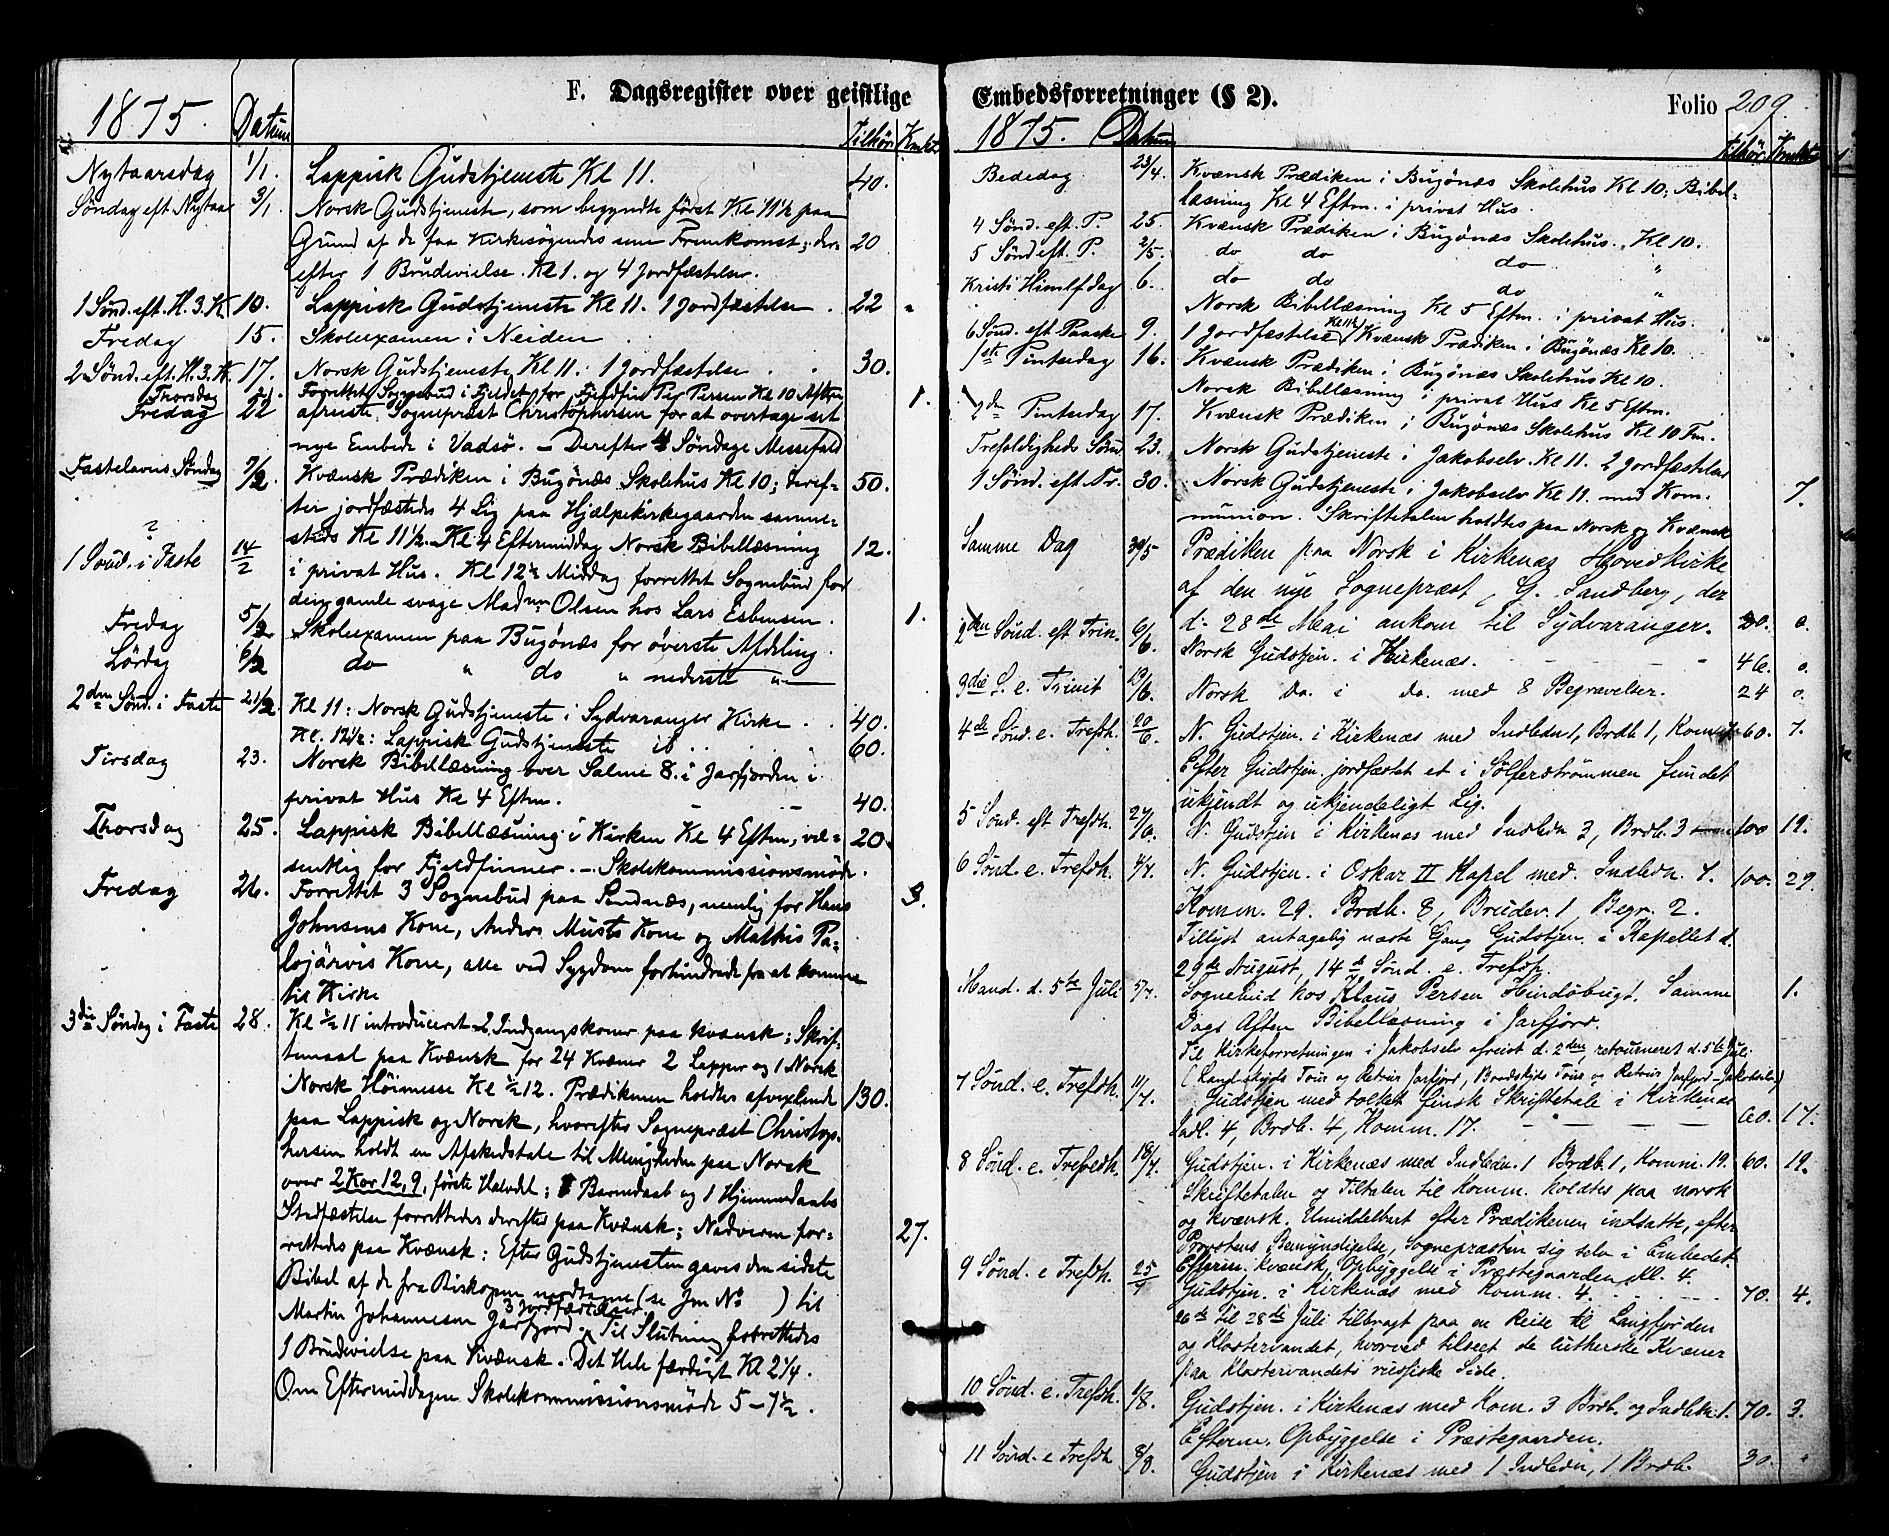 F. Dagsregister over geistlige
1875. Datum Tilhör. Kmkt.
Nytaarsdag 1/1. Lappisk Gudstjeneste Kl 11. 40.
Søndag eft Nytaar 3/1. Norsk Gudstjeneste, som begyndte først Kl 11½ paa
Grund af de faa Kirkesøgendes sene Fremkomst; der- 20
efter 1 Brudevielse Kl 1. og 4 Jordfæstelser.
1 Sönd. eft. H. 3. K. 10. Lappisk Gudstjeneste Kl 11. 1 Jordfæstelse . 22 "
Fredag 15. Skoleexamen i Neiden
2 Sönd. eft. H. 3. K. 17. Norsk Gudstjeneste Kl 11. 1 Jordfæstelse . . 30.
Thorsdag 21. Forrettet Sognebud i Fjeldet for Fjeldfin Per Persen Kl 10 Aften 1.
Fredag 22 afreiste Sognepræst Christophersen for at overtage sit
nye Embede i Vadsö. – Derefter 4 Söndage Messefald
Fastelavns Søndag 7/2. Kvænsk Prædiken i Bugönæs Skolehus Kl 10; deref- 50.
ter jordfæstedes 4 Lig paa Hjælpekirkegaarden samme-
?
1 Sönd. i Faste 14/2 steds Kl 11½. – Kl 4 Eftermiddag Norsk Bibellæsning 12.
i privat Hus. Kl 12½ Middag forrettet Sognebud for
den gamle svage Mad. Olsen hos Lars Esbensen. 1.
Fredag 5/2 Skoleexamen paa Bugönæs for överste Afdeling.
Lørdag 6/2 do " do " nederste "
2den Sönd. i Faste 21/2 Kl 11: Norsk Gudstjeneste i Sydvaranger Kirke . . 40.
Kl. 12½: Lappisk Gudstjeneste ib . . 60.
Tirsdag 23. Norsk Bibellæsning over Salme 8. i Jarfjorden i
privat Hus Kl 4 Eftm. – – 40.
Thorsdag 25. Lappisk Bibellæsning i Kirken Kl 4 Eftm, væ- 20.
sentlig for Fjeldfinner. – Skolekommissionsmöde.
Fredag 26. Forrettet 3 Sognebud paa Sandnæs, nemlig for Hans 3.
Johnsens Kone, Anders Musts Kone og Mathis Pa-
lojärvis Kone, alle ved Sygdom forhindrede fra at komme
til Kirke
3die Søndag i Faste 28. Kl ½11 introduceret 2 Indgangskoner paa kvænsk; Skrif-
temaal paa Kvænsk for 24 Kvæner 2 Lapper og 1 Norsk
Norsk Höimesse Kl ½12. Prædikenen holdtes afvexlende 130.
paa Lappisk og Norsk, hvorefter Sognepræst Christop-
hersen holdt en Afskedstale til Menigheden paa Norsk
over 2 Kor 12, 9, første Halvdel; Barnedaab og 1 Hjemmedaabs
Stadfæstelse forrettedes derefter paa Kvænsk; Nadveren for- 27.
rettedes paa Kvænsk: Efter Gudstjenesten gaves den sidste
Bibel af de fra Biskopen modtagne (se Jm No ) til
Martin Johannesen Jarfjord. 3 Jordfæstelser. Til Slutning forrettedes
1 Brudevielse paa Kvænsk. Det Hele færdigt Kl 2¼.
Om Eftermiddagen Skolekommissionsmöde 5 – 7½.
Embedsforretninger (§ 2). Folio 209.
1875. Datum Tilhör. Kmkt
Bededag 23/4. Kvænsk Prædiken i Bugönæs Skolehus Kl 10, Bibel-
læsning Kl 4 Eftm. i privat Hus.
4 Sönd. eft. P. 25. Kvænsk Prædiken i Bugönæs Skolehus. Kl 10.
5 Sönd eft. P. 2/5. do do do "
Kristi Himlf dag 6. do do do "
Norsk Bibellæsning Kl 5 Eftm. i privat Hus.
6 Sönd. eft Paaske 9. 1 Jordfæstelse Kl 11½ Kvænsk Prædiken i Bugönæs Kl 10.
1ste Pintsedag 16. Kvænsk Prædiken i Bugönæs Skolehus Kl 10.
Norsk Bibellæsning i privat Hus Kl 5 Eftm.
2den Pintsedag 17. Kvænsk Prædiken i Bugönæs Skolehus Kl 10 Fm.
Trefoldigheds Sönd 23. Norsk Gudstjeneste i Jakobselv. Kl 11. 2 Jordfæstelser
1 Sönd. eft Tr. 30. Norsk Gudstjeneste i Jakobselv Kl 11 med Kom- 7.
munion. Skriftetalen holdtes paa Norsk og Kvænsk
Samme Dag 30/5 Prædiken paa Norsk i Kirkenæs Hovedkirke
af den nye Sognepræst, G. Sandberg, der
d. 28de Mai ankom til Sydvaranger. 20. 0.
2den Sönd. eft Trin. 6/6. Norsk Gudstjen. i Kirkenæs. – – – 46. 0.
3die S. e. Trinit 13/6. Norsk Do. i Do. med 8 Begravelser. 24 0.
4de Sönd. e. Trefdh. 20/6. N. Gudstjen. i Kirkenæs med Indledn 1, Brdb 1, Kom 60. 7.
Efter Gudstjen. jordfæstet et i Sölferströmmen fundet
ukjendt og ukjendeligt Lig.
5 Sönd. eft Trefdh. 27/6. N. Gudstjen i Kirkenæs med Indledn 3, Brdb. 3 100 19.
6 Sönd. e. Trefdh. 4/7. N. Gudstjen. i Oskar II Kapel med. Indledn. 7. 100. 29.
Komm. 29. Brdb. 8, Brudev. 1, Begr. 2.
Tillyst antagelig næste Gang Gudstjen. i Kapellet d.
29de August, 14de Sönd. e. Trefdh.
Mand. d. 5te Juli 5/7. Sognebud hos Klaus Persen Sandöbugt. Samme 1.
Dags Aften Bibellæsning i Jarfjord.
Til Kirkeforretningen i Jakobselv afreist d. 2den, retourneret d. 5te Juli.
(Landskyds Tour og Retour Jarfjord, Baadskyds Tour og Retour Jarfjord – Jakobselv)
7 Sönd. e. Trefdh. 11/7. Gudstjen med tolket finsk Skriftetale i Kirkenæs
Indl. 4, Brdb. 4, Komm. 17. – – – – 60. 17.
8 Sönd. e. Trefdh. 18/7. Gudstjen. i Kirkenæs med Indledn. 1 Brdb. 1, Komm. 19. 60. 19.
Skriftetalen og Tiltalen til Komm. holdtes paa norsk
og kvænsk. Umiddelbart efter Prædikenen indsatte, efter
Provstens Bemyndigelse, Sognepræsten sig selv i Embedet.
Efterm. Kvænsk Opbyggelse i Præstegaarden Kl. 4.
9 Sönd. e Trefdh. 25/7 Gudstjen. i Kirkenæs med Komm. 4. – – – 70. 4.
26de til 28de Juli tilbragt paa en Reise til Langfjorden
og Klostervandet, hvorved tilseet de lutherske Kvæner
paa Klostervandets russiske Side.
10 Sönd. e. Trefdh. 1/8. Gudstjen. i Kirkenæs med Kom. 3 Brdb. og Indledn. 1. 70. 3.
Efterm. Opbyggelse i Præstegaarden.
11 Sönd. e Trefdh 8/8. Gudstjen i Kirkenæs med 1 Indledn, 1 Brdb. 30.